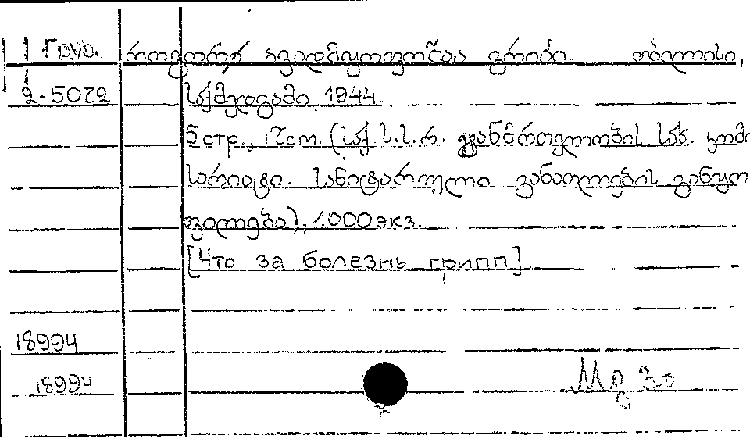 Груз. როგორ ავადმყოფობაა გრიპი. თბილისი,
2-5072 საქმედგამი 1944
5 стр., 17см. (საქ. ს.ს.რ. ჯანმრთელობის სახ. კომი
სარიატი. სანიტარული განათლების განყო
ფილება). 1.000 экз.
[Что за болезнь грипп]
18994
18994